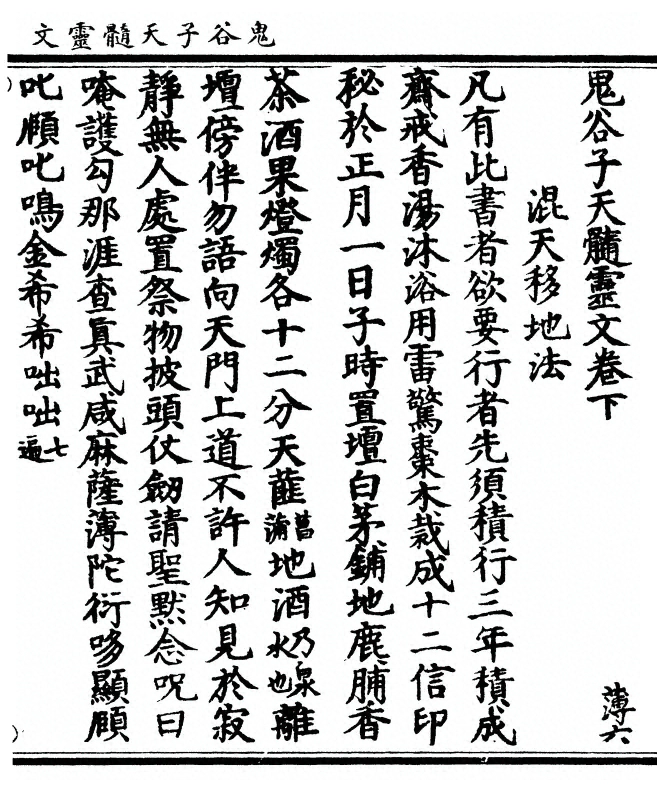 鬼谷子天髓靈文
鬼谷子天髓靈文卷下
薄六
混天移地法
凡有此書者欲要行者先須積行三年積成
齋戒香湯沐浴用雷驚棗木裁成十二信印
秘於正月一日子時置壇白茅鋪地鹿脯香
茶酒果燈燭各十二分天䕒菖蒲地酒乃泉水也離
壇傍伴勿語向天門上道不許人知見於寂
靜無人處置祭物披頭仗劒請聖默念呪曰
唵護勾那涯查眞武咸麻薩薄陀衍哆顯頋
叱頋叱鳴金希希咄咄七遍